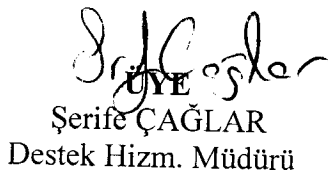 ÜYE
Şerife ÇAĞLAR
Destek Hizm. Müdürü